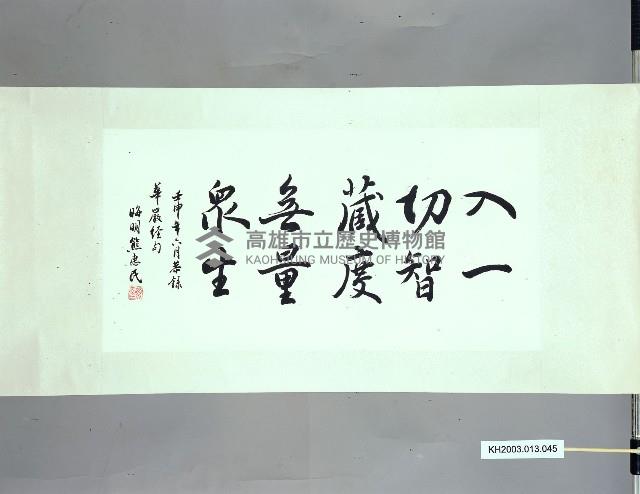 入一
切智
藏度
無量
眾生
壬申年六月恭錄
華嚴經句
晦明熊惠民
高雄市立歷史博物館
KAOHSIUNG MUSEUM OF HISTORY
KH2003.013.045